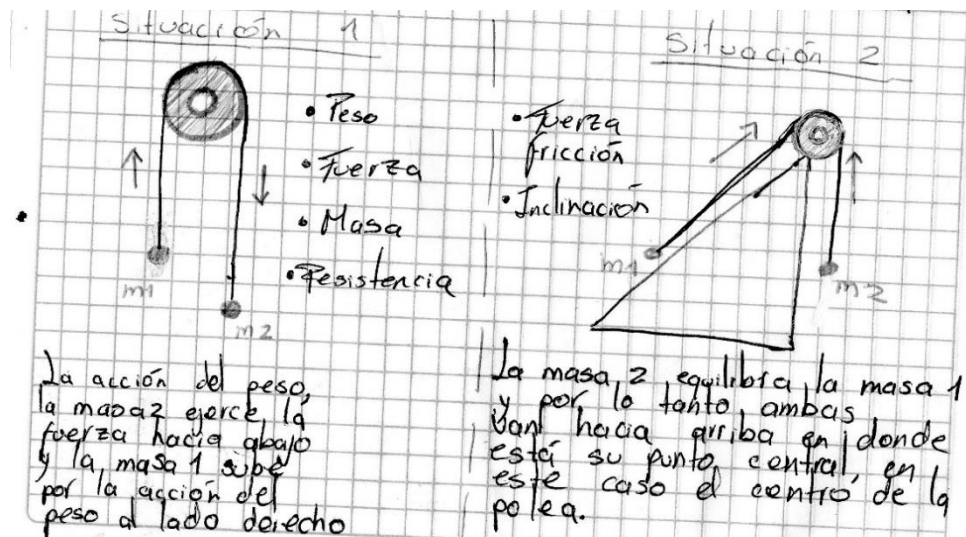 Situación 1
• Peso
• Fuerza
• Masa
• Resistencia
m1
m2
La acción del peso,
la masa2 ejerce la
fuerza hacia abajo
y la masa 1 sube
por la acción del
peso al lado derecho
Situación 2
• Fuerza
fricción
• Inclinación
m1
m2
La masa 2 equilibra la masa 1
y por lo tanto ambas
van hacia arriba en donde
está su punto central, en
este caso el centro de la
polea.